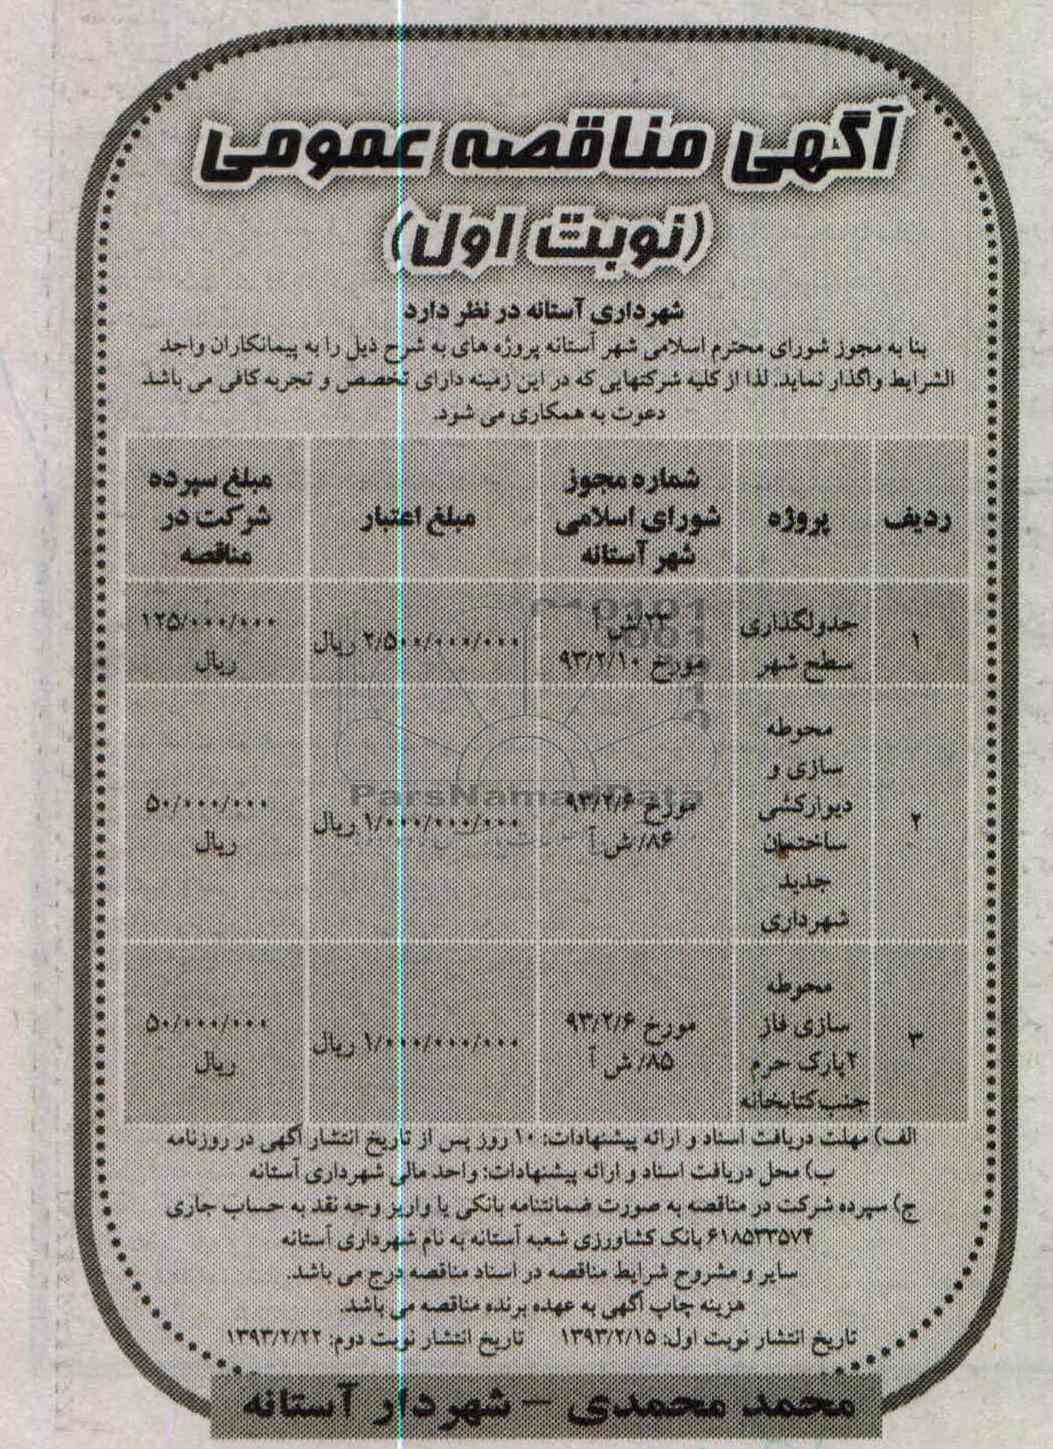 آگهی مناقصه عمومی
(نوبت اول)
شهرداری آستانه در نظر دارد
بنا به مجوز شورای محترم اسلامی شهر آستانه پروژه های به شرح ذیل را به پیمانکاران واجد
الشرایط واگذار نماید. لذا از کلیه شرکتهایی که در این زمینه دارای تخصص و تجربه کافی می باشد
دعوت به همکاری می شود.
ردیف پروژه شماره مجوز شورای اسلامی شهر آستانه مبلغ اعتبار مبلغ سپرده شرکت در مناقصه
۱ جدولگذاری سطح شهر ۲۳/ش آ مورخ ۹۳/۲/۱۰ ۲/۵۰۰/۰۰۰/۰۰۰ ریال ۱۲۵/۰۰۰/۰۰۰ ریال
۲ محوطه سازی و دیوارکشی ساختمان جدید شهرداری مورخ ۹۳/۲/۶ ۸۶/ش آ ۱/۰۰۰/۰۰۰/۰۰۰ ریال ۵۰/۰۰۰/۰۰۰ ریال
۳ محوطه سازی فاز ۲پارک حرم جنب کتابخانه مورخ ۹۳/۲/۶ ۸۵/ش آ ۱/۰۰۰/۰۰۰/۰۰۰ ریال ۵۰/۰۰۰/۰۰۰ ریال
ParsNamadData
الف) مهلت دریافت اسناد و ارائه پیشنهادات: ۱۰ روز پس از تاریخ انتشار آگهی در روزنامه
ب) محل دریافت اسناد و ارائه پیشنهادات: واحد مالی شهرداری آستانه
ج) سپرده شرکت در مناقصه به صورت ضمانتنامه بانکی یا واریز وجه نقد به حساب جاری
۶۱۸۵۳۳۵۷۴ بانک کشاورزی شعبه آستانه به نام شهرداری آستانه
سایر و مشروح شرایط مناقصه در اسناد مناقصه درج می باشد.
هزینه چاپ آگهی به عهده برنده مناقصه می باشد.
تاریخ انتشار نوبت اول: ۱۳۹۳/۲/۱۵ تاریخ انتشار نوبت دوم: ۱۳۹۳/۲/۲۲
محمد محمدی – شهردار آستانه